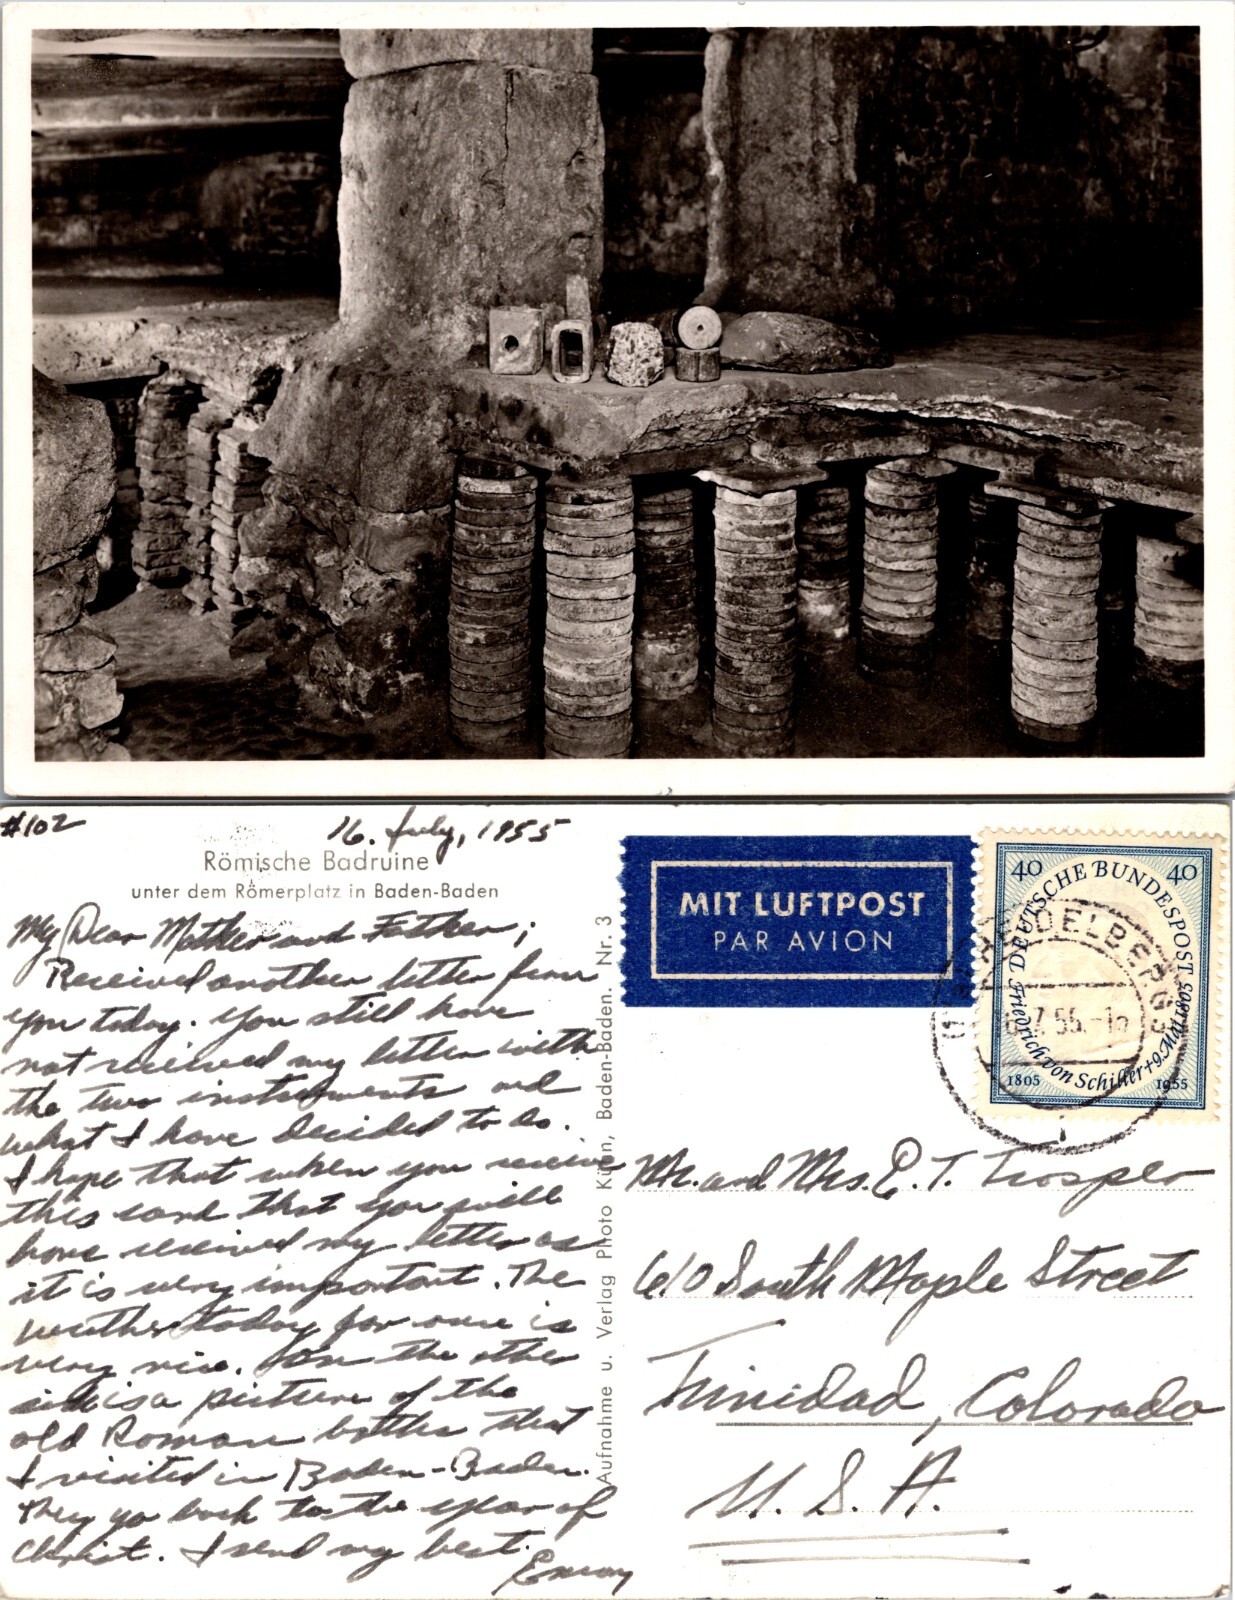 #102
16. July, 1955
Römische Badruine
unter dem Römerplatz in Baden-Baden
My Dear Mother and Father;
Received another letter from
you today. You still have
not received my letter with
the two instruments and
what I have decided to do.
I hope that when you receive
this card that you will
have received my letter as
it is very important. The
weather today for once is
very nice. On the other
side is a picture of the
old Roman baths that
I visited in Baden-Baden.
They go back to the year of
Christ. I send my best.
Emory
Aufnahme u. Verlag Photo Kühn, Baden-Baden. Nr. 3
MIT LUFTPOST
PAR AVION
40 40
DEUTSCHE BUNDESPOST
Friedrich von Schiller † 9. Mai 1805
1805 1955
HEIDELBERG
7.55.-1
Mr. and Mrs. E. T. Prosper
610 South Maple Street
Trinidad, Colorado
U. S. A.